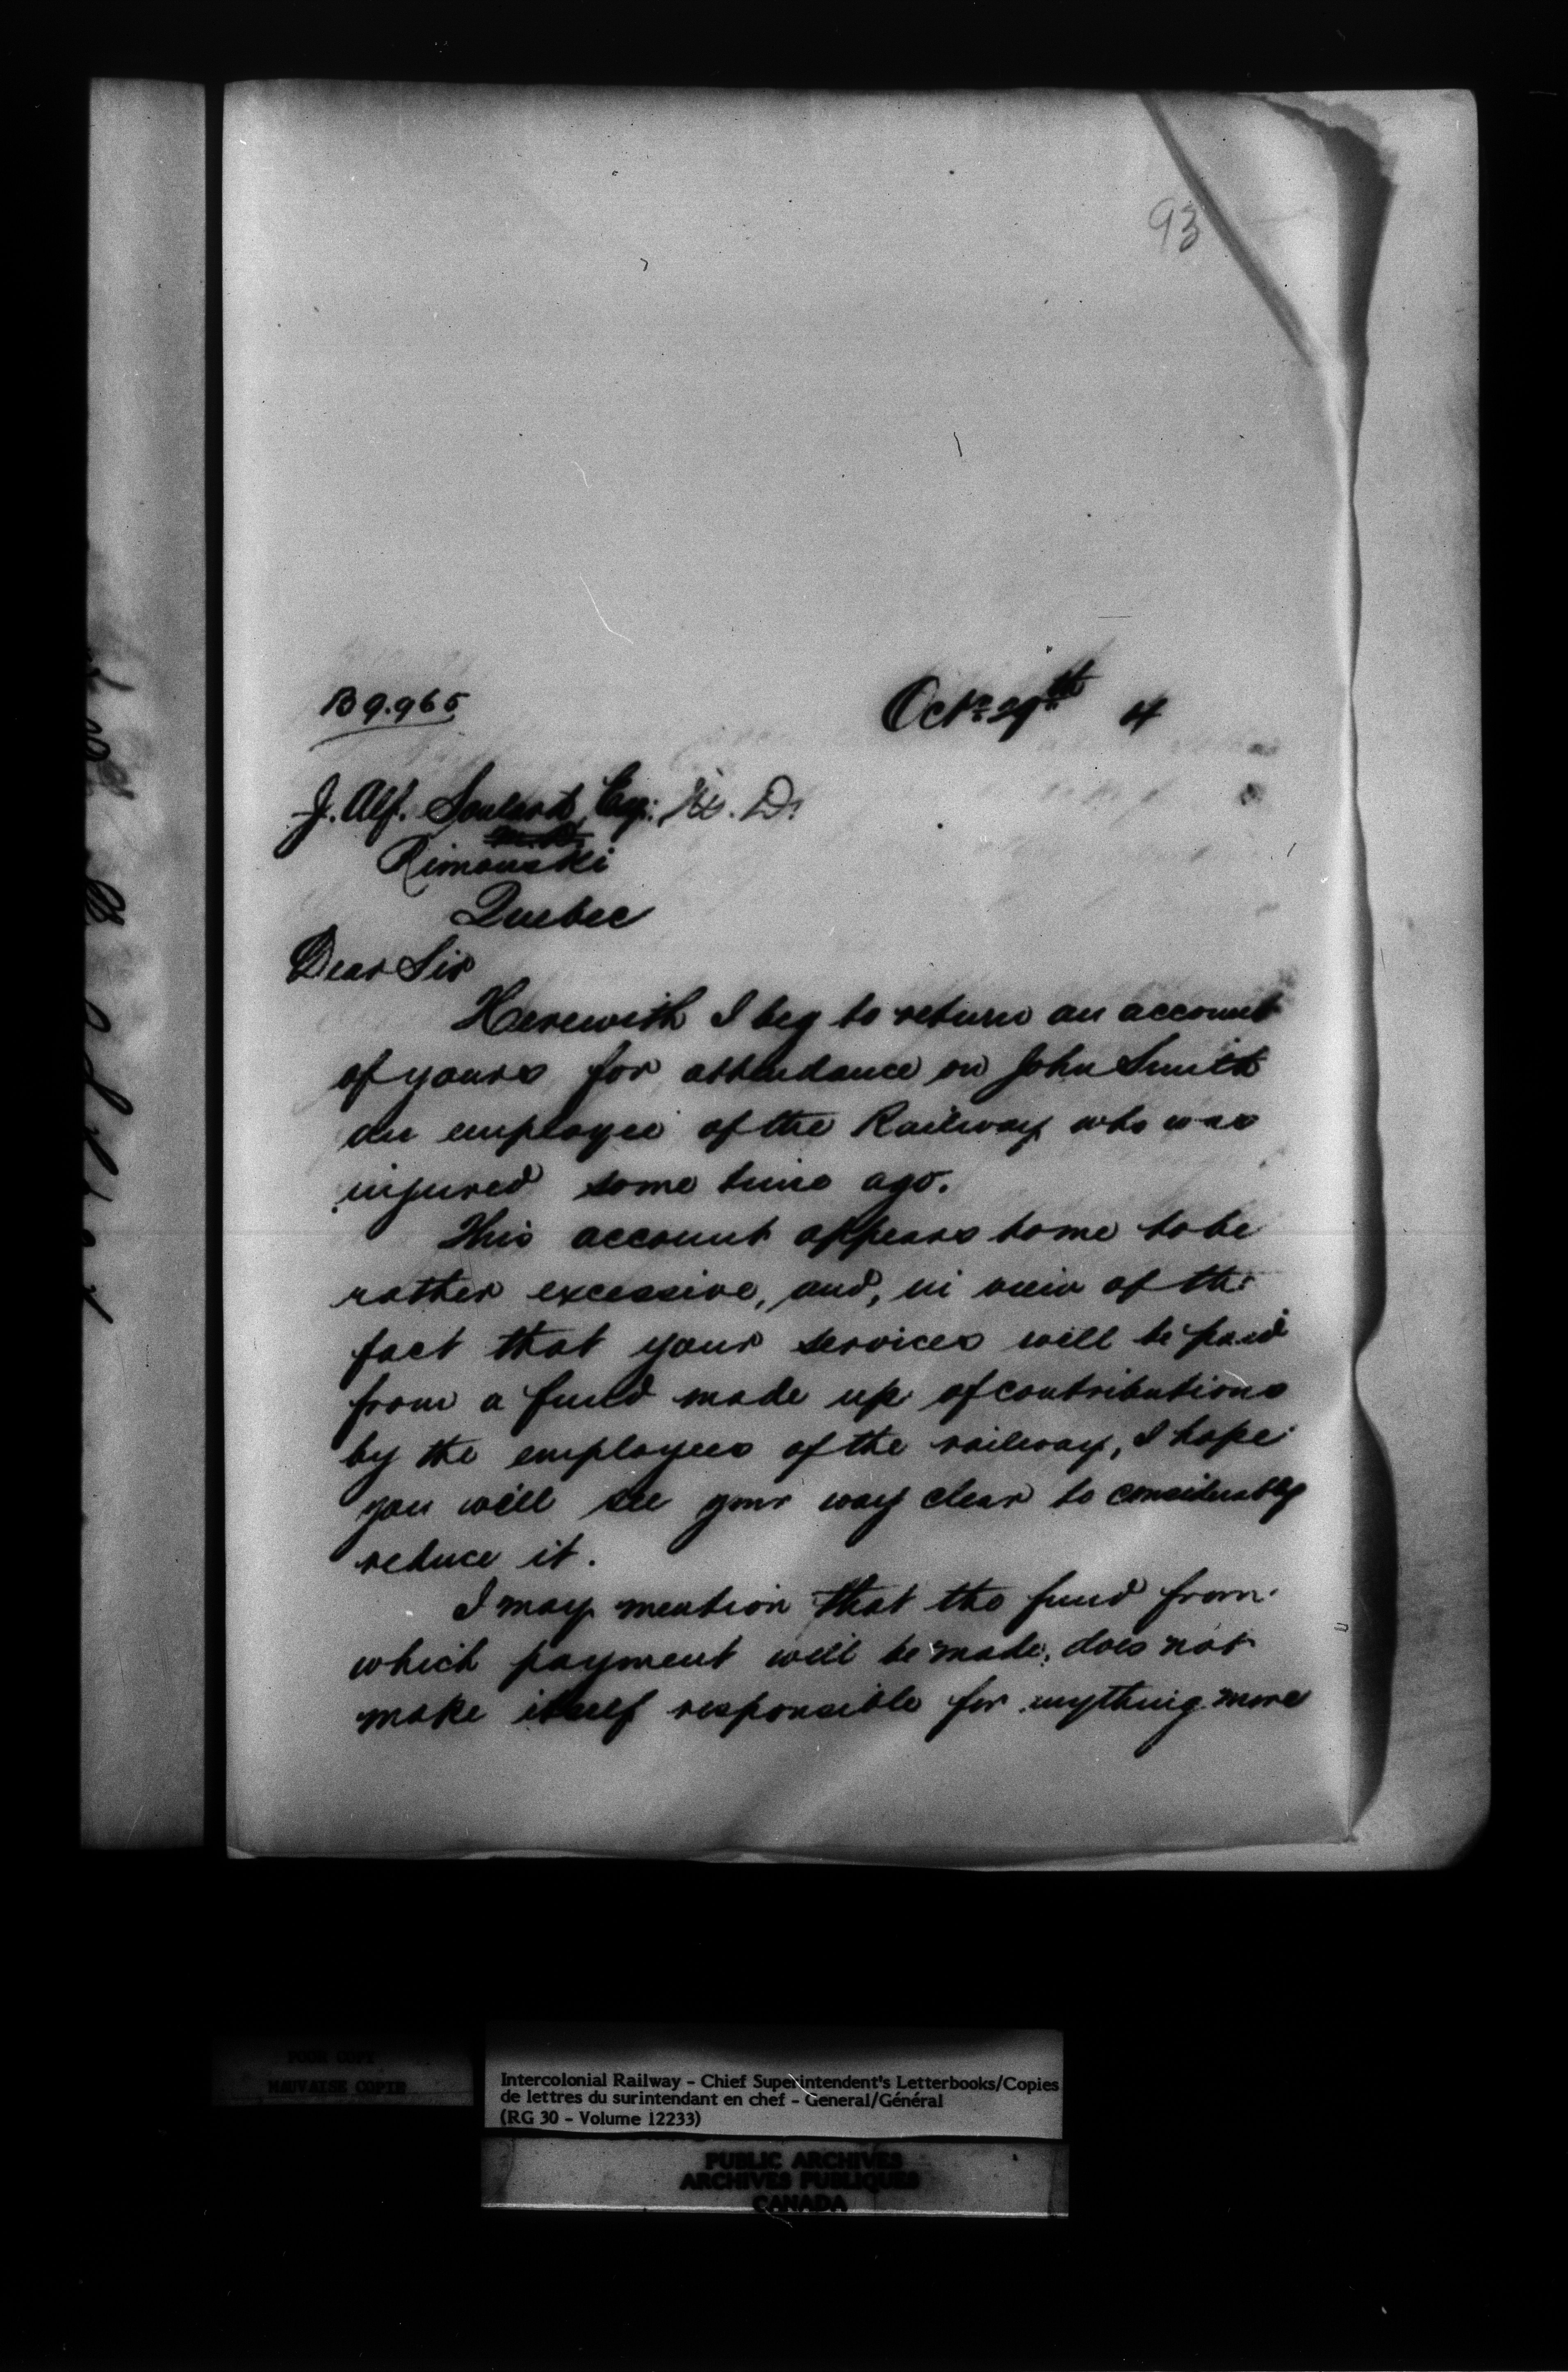 93
B 9.965
Oct. 29th 4
J. Alf. Soulard, Esq: M. D.
M.D.
Rimouski
Quebec
Dear Sir
Herewith I beg to return an account
of yours for attendance on John Smith
an employee of the Railway who was
injured some time ago.
This account appears to me to be
rather excessive, and, in view of the
fact that your services will be paid
from a fund made up of contributions
by the employees of the railway, I hope
you will see your way clear to considerably
reduce it.
I may mention that the fund from
which payment will be made, does not
make itself responsible for anything more
POOR COPY
MAUVAISE COPIE
Intercolonial Railway - Chief Superintendent's Letterbooks/Copies
de lettres du surintendant en chef - General/Général
(RG 30 - Volume 12233)
PUBLIC ARCHIVES
ARCHIVES PUBLIQUES
CANADA